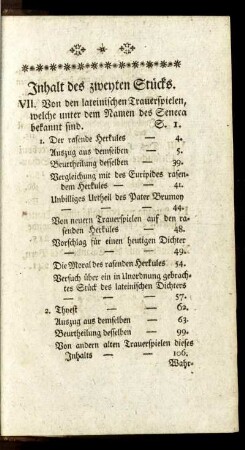 Inhalt des zweyten Stücks.
VII. Von den lateinischen Trauerspielen,
welche unter dem Namen des Seneca
bekannt sind. S. 1.
1. Der rasende Herkules — 4.
Auszug aus demselben — 5.
Beurtheilung desselben — 39.
Vergleichung mit des Euripides rasen-
dem Herkules — — 41.
Unbilliges Urtheil des Pater Brumoy
— — — — 44.
Von neuern Trauerspielen auf den ra-
senden Herkules — — 48.
Vorschlag für einen heutigen Dichter
— — — — 49.
Die Moral des rasenden Herkules 54.
Versuch über ein in Unordnung gebrach-
tes Stück des lateinischen Dichters
— — — — 57.
2. Thyest — — — 62.
Auszug aus demselben — — 63.
Beurtheilung desselben — 99.
Von andern alten Trauerspielen dieses
Inhalts — — — 106.
Wahr-